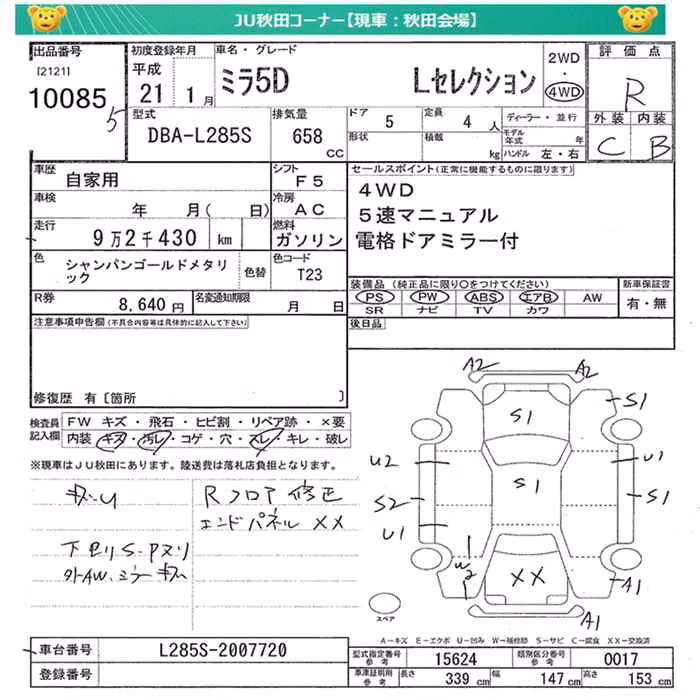 JU秋田コーナー【現車：秋田会場】
出品番号
[2121]
10085
5
初度登録年月
平成
21 1月
車名・グレード
ミラ5D Lセレクション
2WD
・
4WD
評価点
R
外装 内装
C B
型式
DBA-L285S
排気量
658
CC
ドア 5
定員 4 人
形状
積載 kg
ディーラー・並行
モデル年式 年
ハンドル 左・右
車歴
自家用
シフト
F5
車検
年 月( 日)
冷房
AC
走行
9万2千430 km
燃料
ガソリン
色
シャンパンゴールドメタリック
色替
色コード
T23
R券
8,640 円
名変通知期限
月 日
セールスポイント(正常に機能するものに限ります)
4WD
5速マニュアル
電格ドアミラー付
装備品 (純正品に限り○をつけてください)
PS PW ABS エアB AW
SR ナビ TV カワ
新車保証書
有・無
後日品
注意事項申告欄(不具合内容等は具体的に記入して下さい)
修復歴 有〔箇所 〕
検査員記入欄
FW キズ・飛石・ヒビ割・リペア跡・×要
内装 キズ・汚レ・コゲ・穴・スレ・キレ・破レ
※現車はJU秋田にあります。陸送費は落札店負担となります。
キズU
Rフロア修正
エンドパネル XX
下セリS-Pヌリ
A2 A2
S1 S1
U2 U1
S1
S2 S1
U1
W2
XX
A1
A1
スペア
A-キズ E-エクボ U-凹み W-補修跡 S-サビ C-腐食 XX-交換済
車台番号
L285S-2007720
登録番号
型式指定番号
参考
15624
類別区分番号
参考
0017
車検証別
参考
長さ 339 cm
幅 147 cm
高さ 153 cm